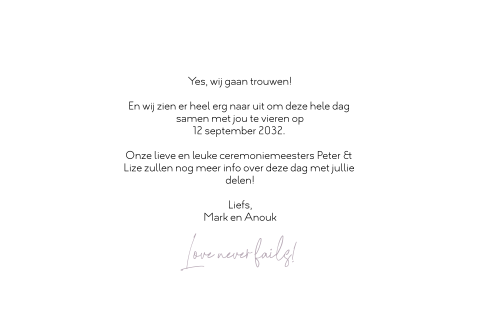 Yes, wij gaan trouwen!
En wij zien er heel erg naar uit om deze hele dag
samen met jou te vieren op
12 september 2032.
Onze lieve en leuke ceremoniemeesters Peter &
Lize zullen nog meer info over deze dag met jullie
delen!
Liefs,
Mark en Anouk
Love never fails!